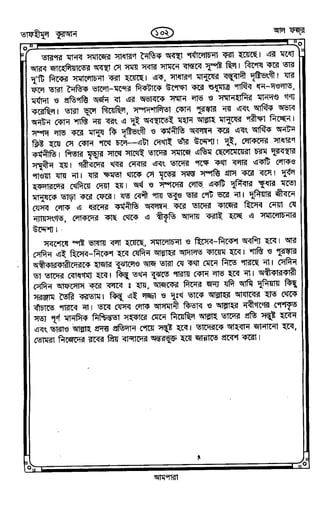 তাফহীমুল কুরআন
১০২
আল ফজর
তারপর মানব সমাজের সাধারণ নৈতিক অবস্থা পর্যালোচনা করা হয়েছে। এর মধ্যে
আরব জাহেলিয়াতের অবস্থা সে সময় সবার সামনে বাস্তবে সুস্পষ্ট ছিল। বিশেষ করে তার
দু'টি দিকের সমালোচনা করা হয়েছে। এক, সাধারণ মানুষের বস্তুবাদী দৃষ্টিভংগী। যার
ফলে তারা নৈতিক ভালো-মন্দের দিকটাকে উপেক্ষা করে শুধুমাত্র পার্থিব ধন-দওলাত,
মর্যাদা ও প্রতিপত্তি অর্জন বা এর অভাবকে সম্মান লাভ ও সম্মানহানির মানদণ্ড গণ্য
করেছিল। তারা ভুলে গিয়েছিল, সম্পদশালিতা কোন পুরস্কার নয় এবং আর্থিক অভাব
অনটন কোন শাস্তি নয় বরং এ দুই অবস্থাতেই মহান আল্লাহ মানুষের পরীক্ষা নিচ্ছেন।
সম্পদ লাভ করে মানুষ কি দৃষ্টিভংগী ও কর্মনীতি অবলম্বন করে এবং আর্থিক অনটন
ক্লিষ্ট হয়ে সে কোন পথে চলে—এটা দেখাই তাঁর উদ্দেশ্য। দুই, লোকদের সাধারণ
কর্মনীতি। পিতার মৃত্যুর সাথে সাথেই তাদের সমাজে এতিম ছেলেমেয়েরা চরম দুরবস্থার
সম্মুখীন হয়। গরীবদের খবর নেবার এবং তাদের পক্ষে কথা বলার একটি লোকও
পাওয়া যায় না। যার ক্ষমতা থাকে সে মৃতের সমস্ত সম্পত্তি গ্রাস করে বসে। দুর্বল
হকদারদের খেদিয়ে দেয়া হয়। অর্থ ও সম্পদের লোভ একটি দুর্নিবার ক্ষুধার মতো
মানুষকে তাড়া করে ফেরে। যত বেশী পায় তবুও তার পেট ভরে না। দুনিয়ার জীবনে
যেসব লোক এ ধরনের কর্মনীতি অবলম্বন করে তাদের কাজের হিসেব নেয়া যে
ন্যায়সংগত, লোকদের কাছ থেকে এ স্বীকৃতি আদায় করাই হচ্ছে এ সমালোচনার
উদ্দেশ্য।
সবশেষে স্পষ্ট ভাষায় বলা হয়েছে, সমালোচনা ও হিসেব-নিকেশ অবশ্যি হবে। আর
সেদিন এই হিসেব-নিকেশ হবে যেদিন আল্লাহর আদালত কায়েম হবে। শাস্তি ও পুরস্কার
অস্বীকারকারীদেরকে হাজার বুঝালেও আজ তারা যে কথা মেনে নিতে পারছে না। সেদিন
তা তাদের বোধগম্য হবে। কিন্তু তখন বুঝতে পারায় কোন লাভ হবে না। অস্বীকারকারী
সেদিন আফসোস করে বলবে ঃ হায়, আজকের দিনের জন্য যদি আমি দুনিয়ায় কিছু
সরঞ্জাম তৈরি করতাম। কিন্তু এই লজ্জা ও দুঃখ তাকে আল্লাহর আযাবের হাত থেকে
বাঁচাতে পারবে না। তবে যেসব লোক আসমানী কিতাব ও আল্লাহর নবীগণের পেশকৃত
সত্য পূর্ণ মানসিক নিশ্চিন্ততা সহকারে মেনে নিয়েছিল আল্লাহ তাদের প্রতি সন্তুষ্ট হবেন
এবং তারাও আল্লাহ প্রদত্ত প্রতিদান পেয়ে সন্তুষ্ট হবে। তাদেরকে আহবান জানানো হবে,
তোমরা নিজেদের রবের প্রিয় বান্দাদের অন্তরভুক্ত হয়ে জান্নাতে প্রবেশ করো।
আমপারা